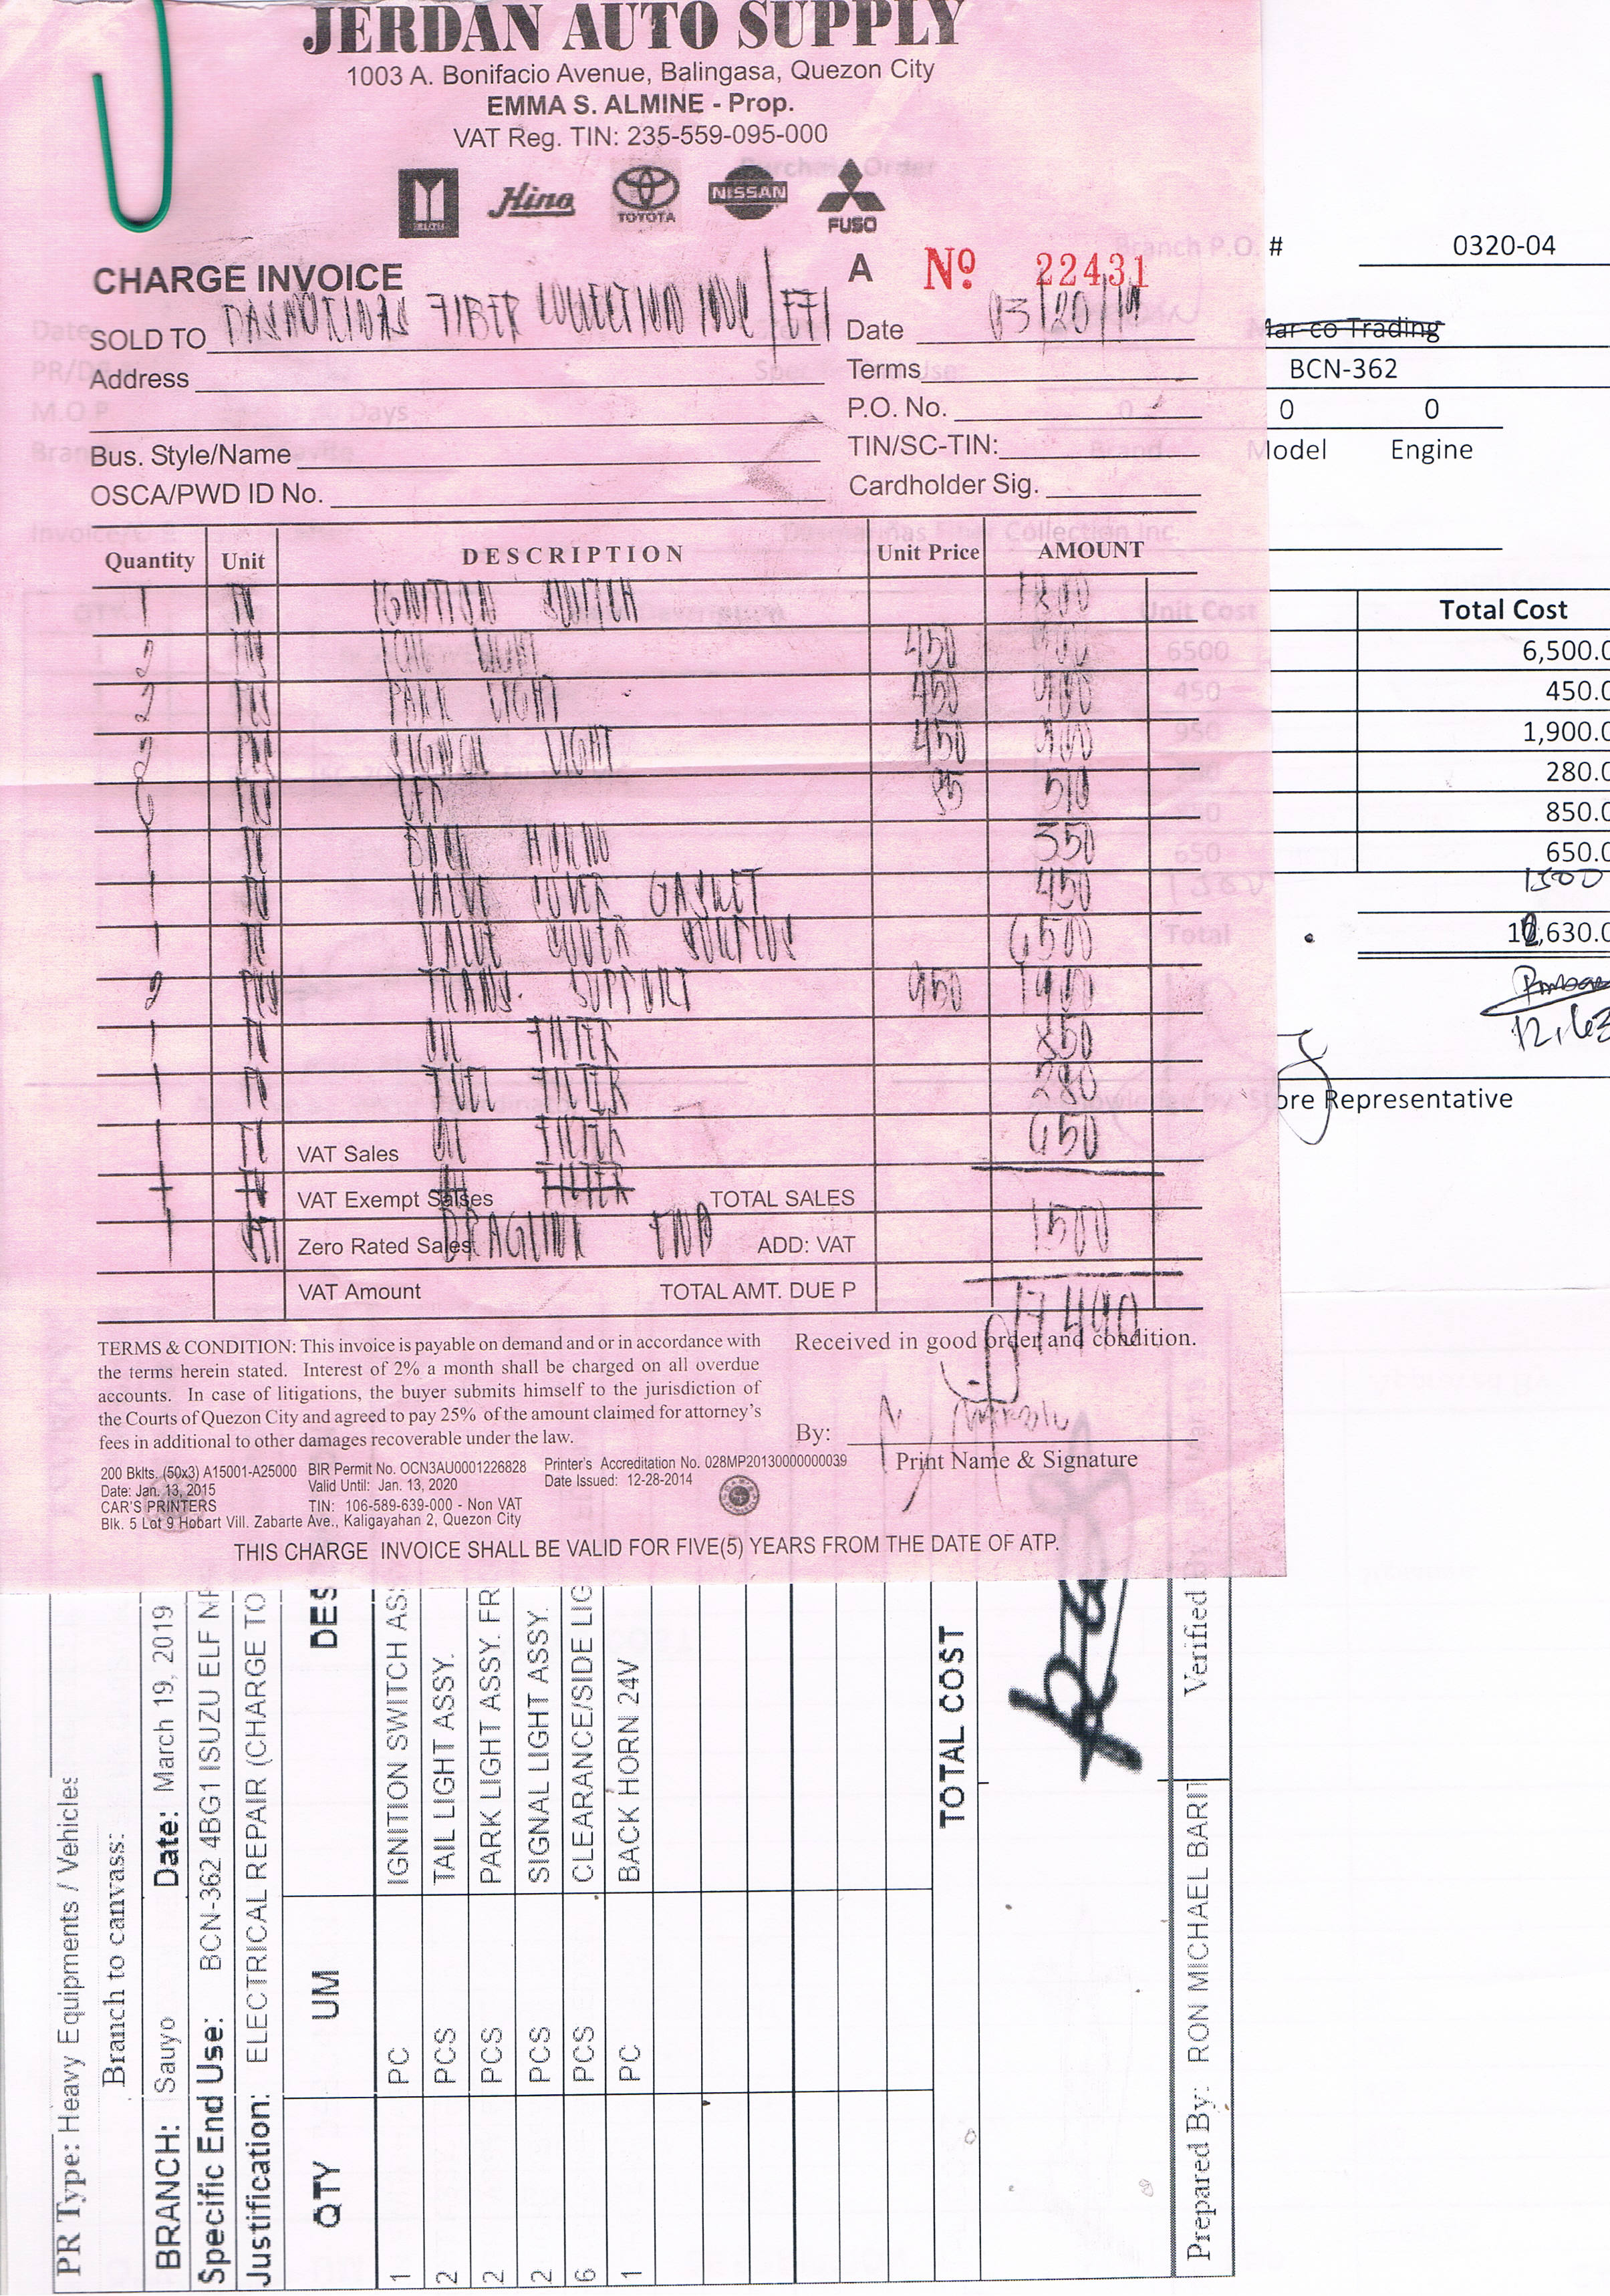 JERDAN AUTO SUPPLY
1003 A. Bonifacio Avenue, Balingasa, Quezon City
EMMA S. ALMINE - Prop.
VAT Reg. TIN: 235-559-095-000
ISUZU Hino TOYOTA NISSAN FUSO
CHARGE INVOICE A Nº 22431
SOLD TO DASMARINAS FIBER COLLECTION INC / EFI Date 03/20/19
Address Terms
P.O. No.
Bus. Style/Name TIN/SC-TIN:
OSCA/PWD ID No. Cardholder Sig.
Quantity Unit DESCRIPTION Unit Price AMOUNT
1 PC IGNITION SWITCH 1800
2 PC TAIL LIGHT 450 900
2 PC PARK LIGHT 450 900
2 PC SIGNAL LIGHT 450 900
6 PC LED 85 510
1 PC BACK HORN 350
1 PC VALVE COVER GASKET 450
1 PC VALVE COVER SURPLUS 6500
2 PCS TRANS. SUPPORT 950 1900
1 PC OIL FILTER 850
1 PC FUEL FILTER 280
1 PC OIL FILTER 650
VAT Sales
VAT Exempt Salses FILTER TOTAL SALES
1 DRAGLINK END 1500
Zero Rated Sales ADD: VAT
VAT Amount TOTAL AMT. DUE P 17490
TERMS & CONDITION: This invoice is payable on demand and or in accordance with
the terms herein stated. Interest of 2% a month shall be charged on all overdue
accounts. In case of litigations, the buyer submits himself to the jurisdiction of
the Courts of Quezon City and agreed to pay 25% of the amount claimed for attorney's
fees in additional to other damages recoverable under the law.
Received in good order and condition.
By:
Print Name & Signature
200 Bklts. (50x3) A15001-A25000 BIR Permit No. OCN3AU0001226828 Printer's Accreditation No. 028MP20130000000039
Date: Jan. 13, 2015 Valid Until: Jan. 13, 2020 Date Issued: 12-28-2014
CAR'S PRINTERS TIN: 106-589-639-000 - Non VAT
Blk. 5 Lot 9 Hobart Vill. Zabarte Ave., Kaligayahan 2, Quezon City
THIS CHARGE INVOICE SHALL BE VALID FOR FIVE(5) YEARS FROM THE DATE OF ATP.
Branch P.O. # 0320-04
Mar-co Trading
BCN-362
0 0
Model Engine
Total Cost
6,500.0
450.0
1,900.0
280.0
850.0
650.0
1500
12,630.0
12,63
Store Representative
PR Type: Heavy Equipments / Vehicles
Branch to canvass:
BRANCH: Sauyo Date: March 19, 2019
Specific End Use: BCN-362 4BG1 ISUZU ELF NP
Justification: ELECTRICAL REPAIR (CHARGE TO
QTY UM DES
1 PC IGNITION SWITCH AS
2 PCS TAIL LIGHT ASSY.
2 PCS PARK LIGHT ASSY. FR
2 PCS SIGNAL LIGHT ASSY.
6 PCS CLEARANCE/SIDE LIG
1 PC BACK HORN 24V
TOTAL COST
Prepared By: RON MICHAEL BARIT Verified